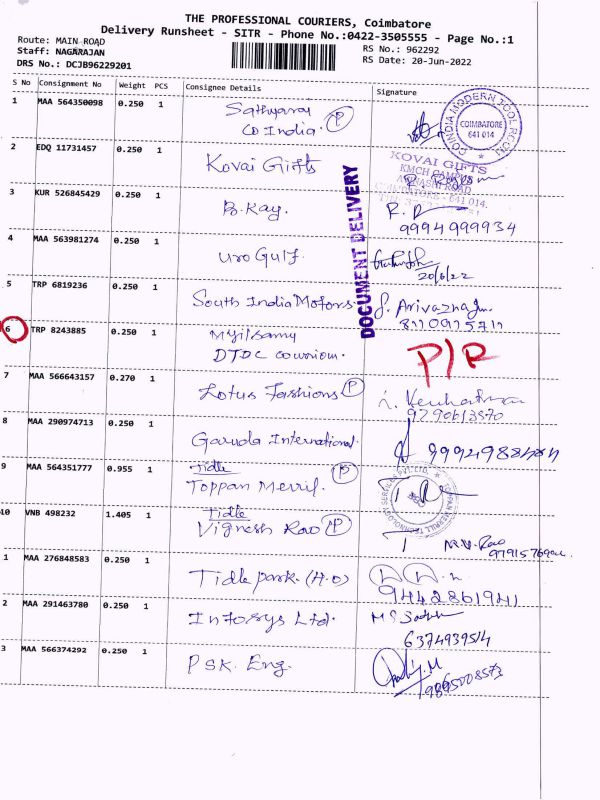 THE PROFESSIONAL COURIERS, Coimbatore
Delivery Runsheet - SITR - Phone No.:0422-3505555 - Page No.:1
Route: MAIN ROAD
Staff: NAGARAJAN
DRS No.: DCJB96229201
RS No.: 962292
RS Date: 20-Jun-2022
S No Consignment No Weight PCS Consignee Details Signature
1 MAA 564350098 0.250 1 Sathyaraj P
Co India.
COIMBATORE
641 014
2 EDQ 11731457 0.250 1 Kovai Gifts
KOVAI GIFTS
KMCH CAMPUS
3 KUR 526845429 0.250 1 B.Kay.
9994999934
DOCUMENT DELIVERY
4 MAA 563981274 0.250 1 Uro Gulf.
20/6/22
5 TRP 6819236 0.250 1 South India Motors.
8110915711
6 TRP 8243885 0.250 1 Mylsamy
DTDC couriom.
P/R
7 MAA 566643157 0.270 1 Lotus Fashions P
9790613570
8 MAA 290974713 0.250 1 Garuda International.
9 MAA 564351777 0.955 1 Tidle
Toppan Merril. P
10 VNB 498232 1.405 1 Tidle
Vignesh Rao P
1 MAA 276848583 0.250 1 Tidle park. (H.O)
9442861941
2 MAA 291463780 0.250 1 Infosys Ltd.
6374939514
3 MAA 566374292 0.250 1 PSK. Eng.
9895008573